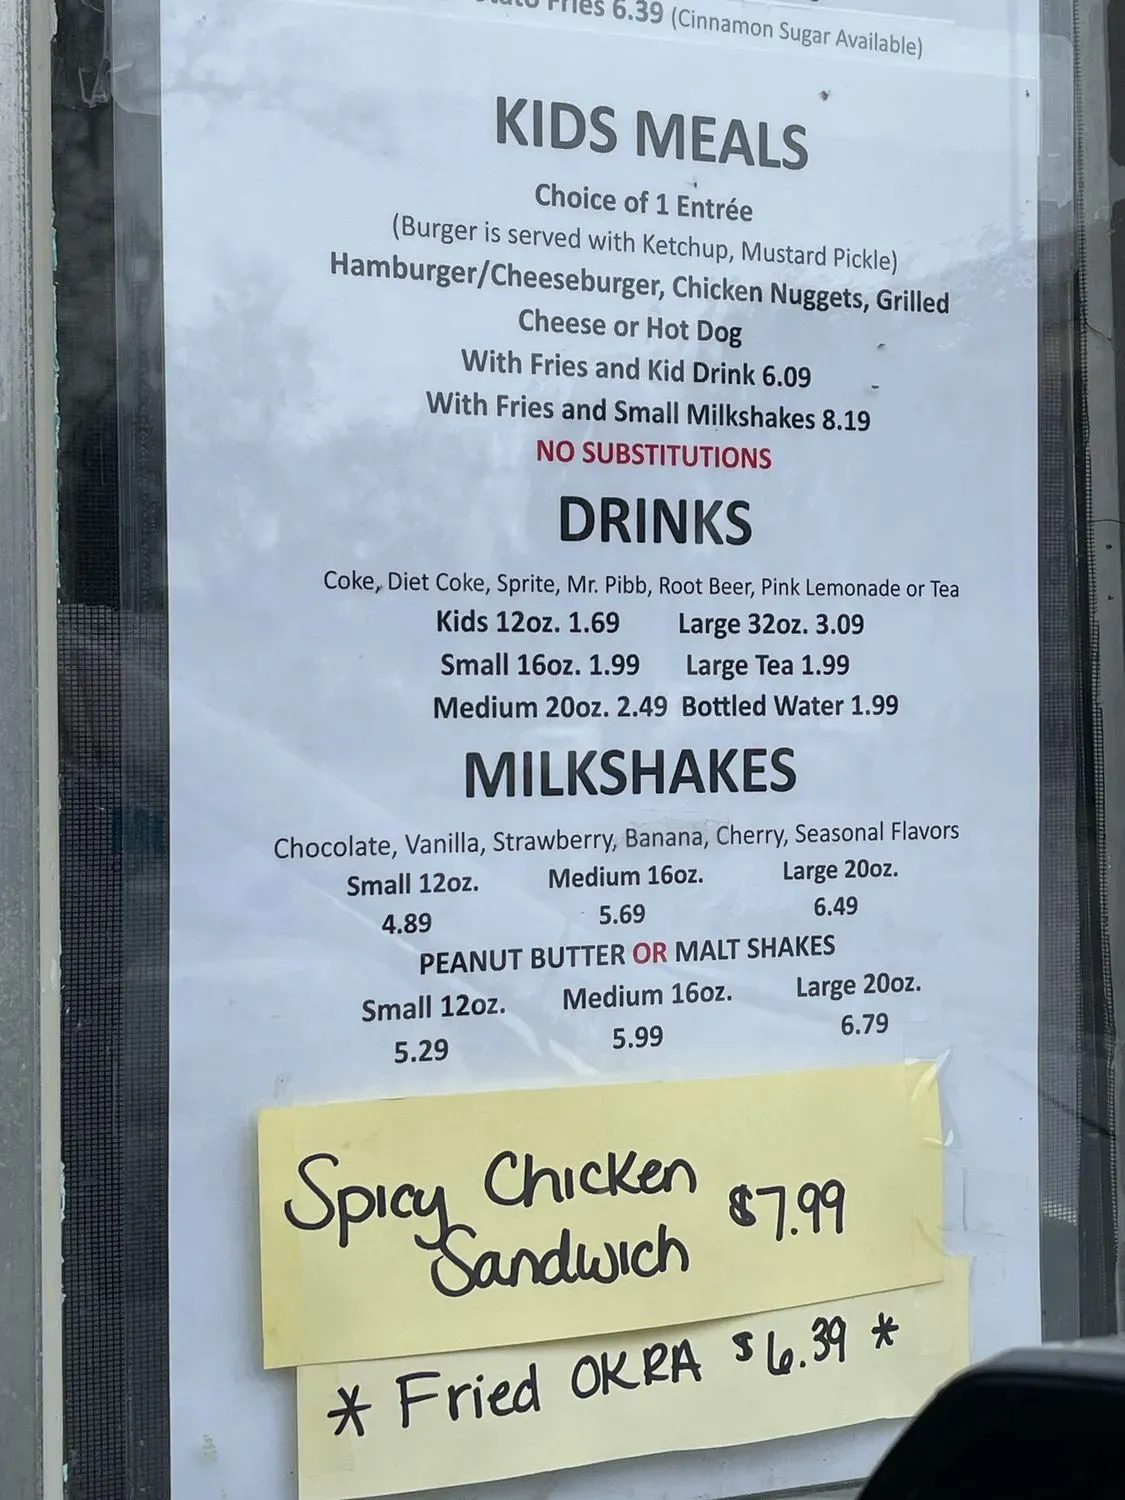 Fries 6.39 (Cinnamon Sugar Available)
KIDS MEALS
Choice of 1 Entrée
(Burger is served with Ketchup, Mustard Pickle)
Hamburger/Cheeseburger, Chicken Nuggets, Grilled
Cheese or Hot Dog
With Fries and Kid Drink 6.09
With Fries and Small Milkshakes 8.19
NO SUBSTITUTIONS
DRINKS
Coke, Diet Coke, Sprite, Mr. Pibb, Root Beer, Pink Lemonade or Tea
Kids 12oz. 1.69 Large 32oz. 3.09
Small 16oz. 1.99 Large Tea 1.99
Medium 20oz. 2.49 Bottled Water 1.99
MILKSHAKES
Chocolate, Vanilla, Strawberry, Banana, Cherry, Seasonal Flavors
Small 12oz. Medium 16oz. Large 20oz.
4.89 5.69 6.49
PEANUT BUTTER OR MALT SHAKES
Small 12oz. Medium 16oz. Large 20oz.
5.29 5.99 6.79
Spicy Chicken $7.99
Sandwich
* Fried OKRA $6.39 *